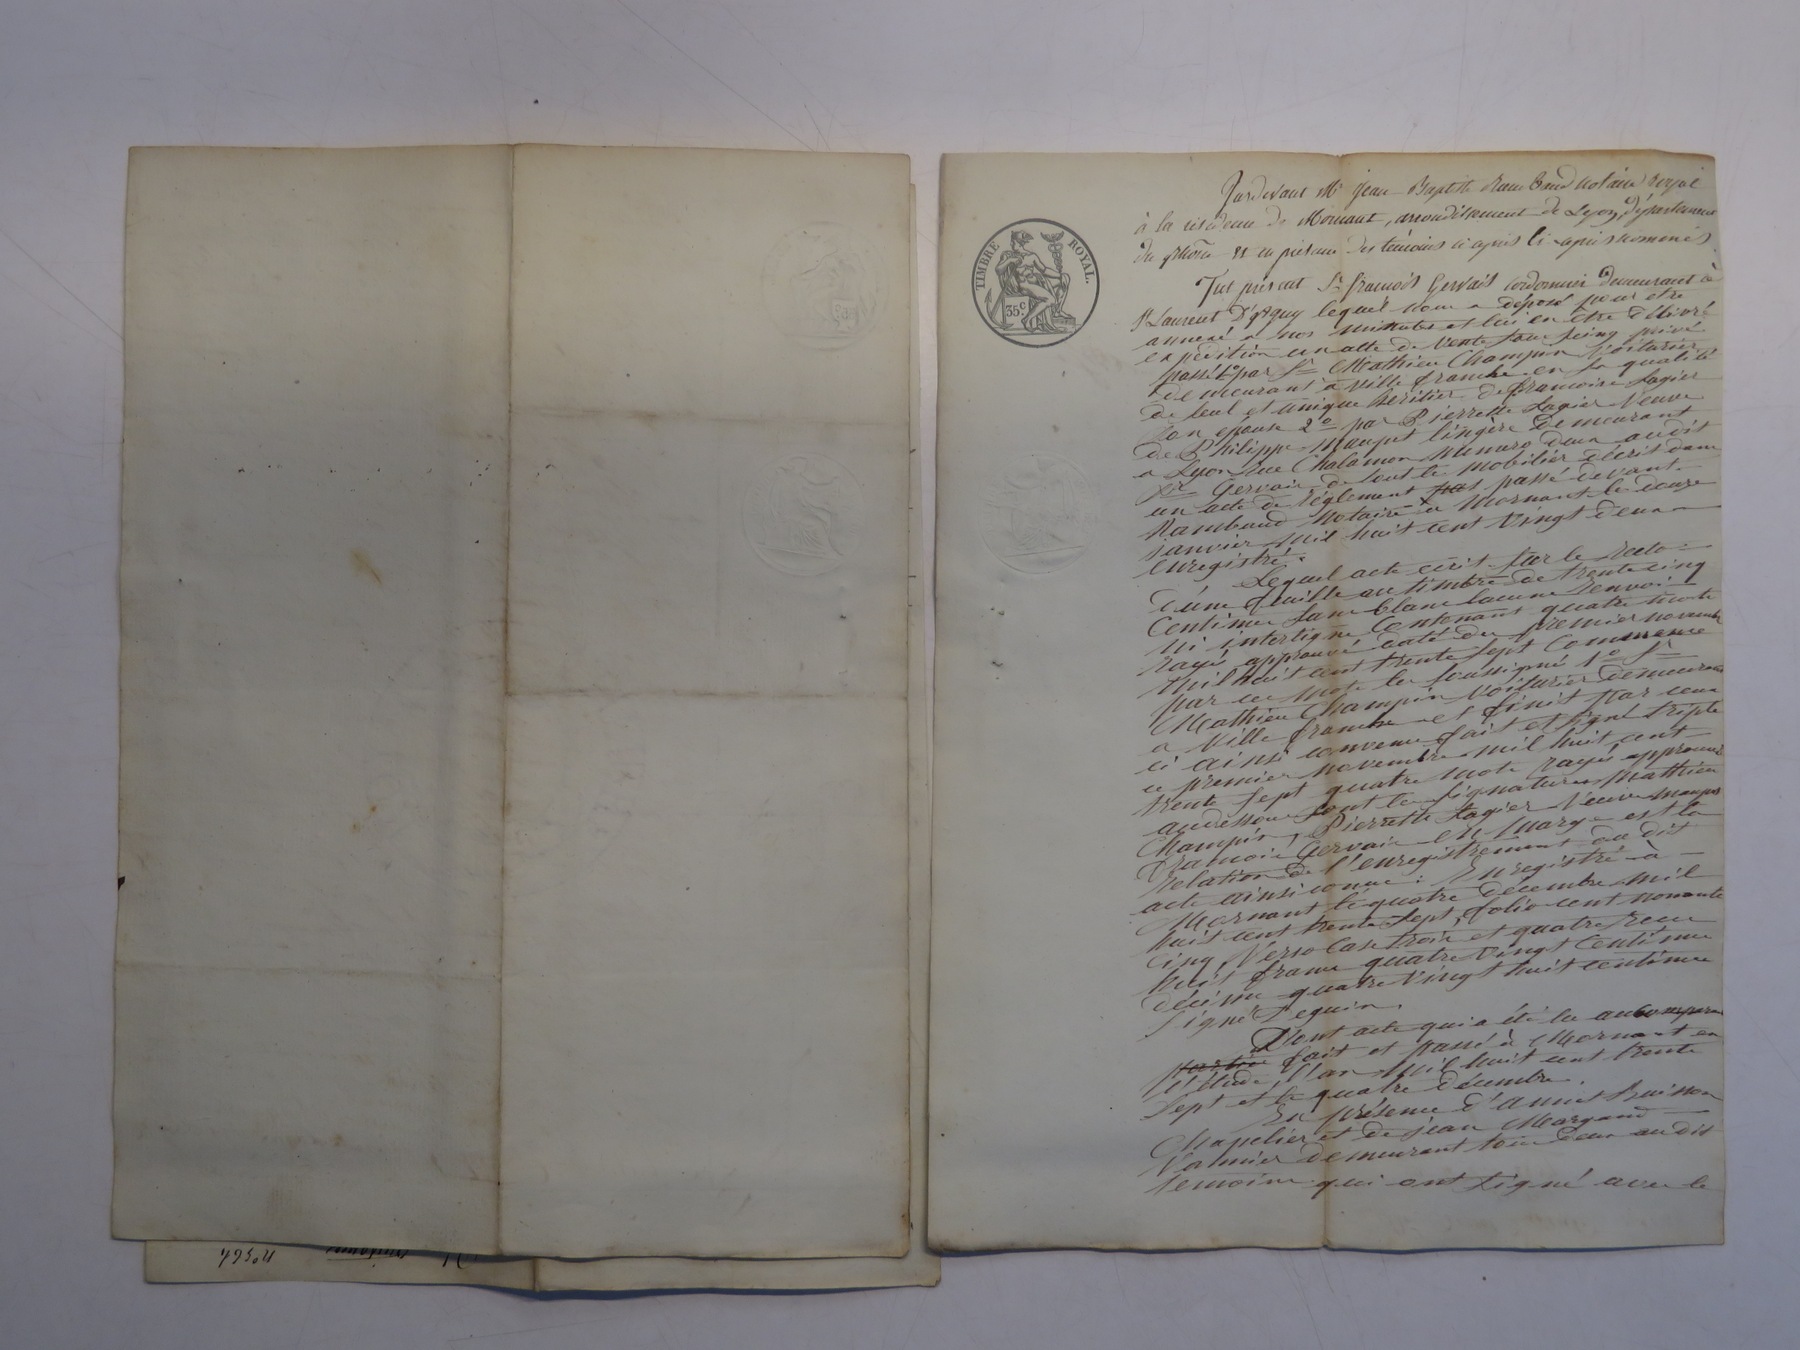 TIMBRE ROYAL.
35 C
Pardevant Me Jean Baptiste Rambaud notaire royal
à la résidence de Mornant, arrondissement de Lyon, département
du Rhône et en présence des témoins ci après
Fut présent Sr françois Gervais cordonnier demeurant à
St Laurent D'agny lequel nous a déposé pour etre
annexé a nos minutes et lui en être délivré
expédition un acte de Vente sous seing privé
passé 1o par Sr Mathieu Champin Voiturier
demeurant a Ville franche en sa qualité
de seul et unique héritier de francoise Lagier
son epouse 2o par Pierrette Lagier Veuve
de Philippe Maupet lingère demeurant
a Lyon rue Chalamon numero deux audit
Sr Gervais de tout le mobilier décrit dans
un acte de réglement passé devant
Rambaud Notaire a Mornant le douze
janvier mil huit cent Vingt deux
enregistré.
Lequel acte écrit sur le Recto
d'une feuille au timbre de trente cinq
Centimes sans blanc lacune renvoi
ni interligne Contenant quatre mots
rayés approuvé daté du premier novembre
mil huit cent trente sept Commence
par ces mots les soussignés 1o Sr
Mathieu Champin Voiturier demeurant
a Ville franche et finit par ceux
ci ainsi convenu fait et signé triple
ce premier novembre mil huit cent
trente sept quatre mots rayés approuvé
audessous sont les signatures Mathieu
Champin, Pierrette Lagier Veuve Maupet
francois Gervais en marge est la
relation de l'enregistrement du dit
acte ainsi conçue : Enregistré à
Mornant le quatre décembre mil
huit cent trente sept, folio cent nonante
cinq Verso Case trois et quatre reçu
huit francs quatre Vingt Centimes
décime quatre Vingt huit centimes
Signé Pequin.
Dont acte qui a été lu au comparant
fait et passé à Mornant en
l'étude, l'an mil huit cent trente
sept et le quatre décembre.
En présence d'annet Buisson
Chapelier et de jean Margand
Vannier demeurant tous deux audit
témoins qui ont signé avec le
No 364